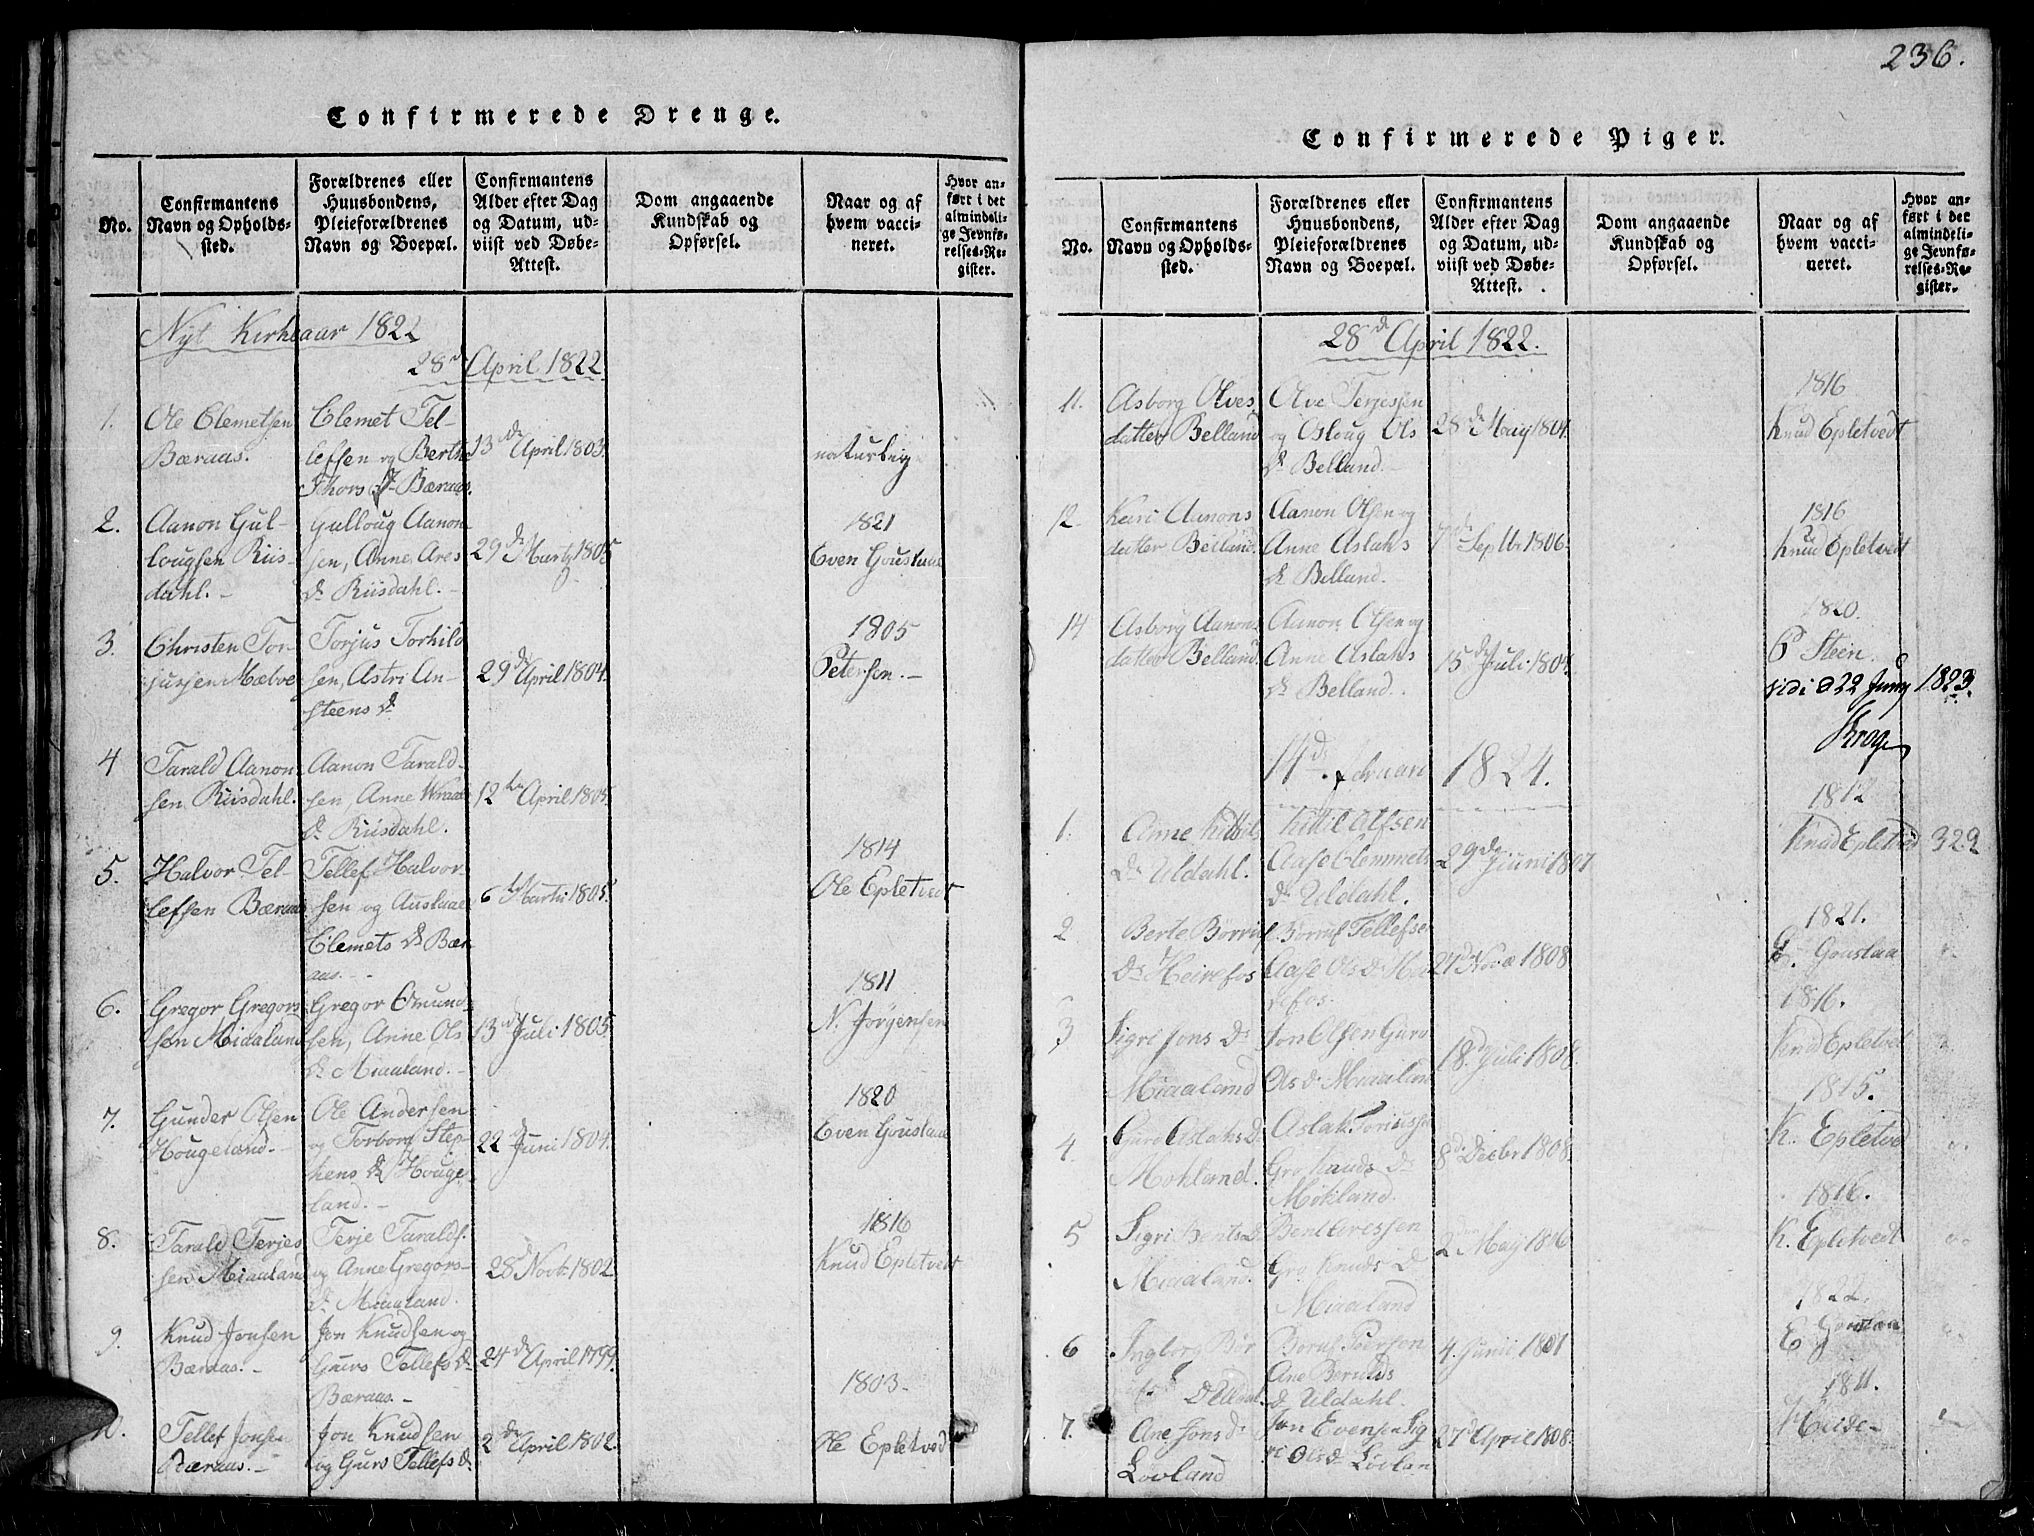 236.
Confirmerede Drenge.
No.
Confirmantens
Navn og Opholds-
sted.
Forældrenes eller
Huusbondens,
Pleieforældrenes
Navn og Boepæl.
Confirmantens
Alder efter Dag
og Datum, ud-
viist ved Døbe-
Attest.
Dom angaaende
Kundskab og
Opførsel.
Naar og af
hvem vacci-
neret.
Hvor an-
ført i det
almindeli-
ge Jevnfø-
relses-Re-
gister.
Nyt Kirkeaar 1822
28d April 1822
1.
Ole Clemetsen
Bæraas.
Clemet Tel-
lefsen og Berthe
Thors D. Bæraas.
13de April 1803.
naturlig
2.
Aanon Gul-
lougsen Riis-
dahl.
Gulloug Aanon-
sen, Anne Ares
D. Riisdahl.
29de Marty 1805
1821
Even Goustaae
3.
Christen Tor-
jusjen Mælve
Torjus Torkild
sen, Astri An-
steens D.
29de April 1804.
1805
Petersen.
4
Tarald Aanon
sen Riisdahl.
Aanon Tarald-
sen, Anne Wraal
D. Riisdahl.
12te April 1805.
5.
Halvor Tel-
lefsen Bæraas
Tellef Halvor-
sen og Austaae
Clemets D. Bær
aas.
6te Marti 1805.
1814
Ole Epletvedt
6.
Gregor Gregors
sen Miaaland
Gregor Omund-
sen, Anne Ols
D. Miaaland.
13de Juli 1805
1811
N. Jørgensen
7.
Gunder Olsen
Hougeland.
Ole Andersen
og Torborg Step
hens D. Houge
land.
22d Juni 1804.
1820
Even Goustaae
8.
Tarald Terjes
sen Miaaland
Terje Taralds.
og Anne Gregors-
D. Miaaland.
28d Novbr 1802.
1816
Knud Epletvedt
9.
Knud Jonsen
Bæraas.
Jon Knudsen og
Guro Tellefs D.
Bæraas.
24de April 1799.
1803.
10.
Tellef Jonsen
Bæraas.
Jon Knudsen
og Guro Tellefs D.
2de April 1802.
Ole Epletved
Confirmerede Piger.
No.
Confirmantens
Navn og Opholds-
sted.
Forældrenes eller
Huusbondens,
Pleieforældrenes
Navn og Boepæl.
Confirmantens
Alder efter Dag
og Datum, ud-
viist ved Døbe-
Attest.
Dom angaaende
Kundskab og
Opførsel.
Naar og af
hvem vacci-
neret.
Hvor an-
ført i det
almindeli-
ge Jevnfø-
relses-Re-
gister.
28d April 1822.
11.
Asborg Olves
datter Belland
Olve Terjesen
og Osloug Ols
D. Belland.
28de May 1804.
1816
Knud Epletvedt
12.
Kari Aanons
datter Belland.
Aanon Olsen og
Anne Aslaks
D. Belland.
7de Septbr 1806.
1816
Knud Epletvedt
14
Asborg Aanons
datter Belland.
Aanon Olsen og
Anne Aslaks
D. Belland.
15de Juli 180
1820.
P Steen.
vidi d 22 Juny 1823.
Krog
14de Februari 1824.
1.
Anne Kittils
Dr Uldahl.
Kittil Olfsen
Aase Clemmets
Dr Uldahl.
29de Juuni 1807
1812
Knud Epletved
322
2
Berte Børrul
Dr Heirefos
Børrul Tellefse
Aase Ols Dr Hei
refos.
27d Nove 1808.
1821.
E. Goustaa
3
Sigri Jons Dr
Miaaland
Jon Olsen Guro
Ols D. Miaalan
18d Juli 1808.
1816.
Knud Epletvedt
4
Guro Aslaks D.
Mokland.
Aslak Torjussen
Gro Knuds Dr
Mokland.
8d Decbr 1808.
1815.
K. Epletved
5
Sigri Bents D.
Miaaland.
Bent Aressen
Gro Knuds D
Miaaland
2den May 18
1816.
K. Epletvedt
6
Ingborg Bør
D Uldal.
Ane Beruls
D Uldahl.
4 Junii 1801
1822.
E Goustaa
7.
Ane Jons Dr
Lovland
Jon Evensen Sig
ri Ols D. Lovlan
27d April 1808.
1811.
Heide